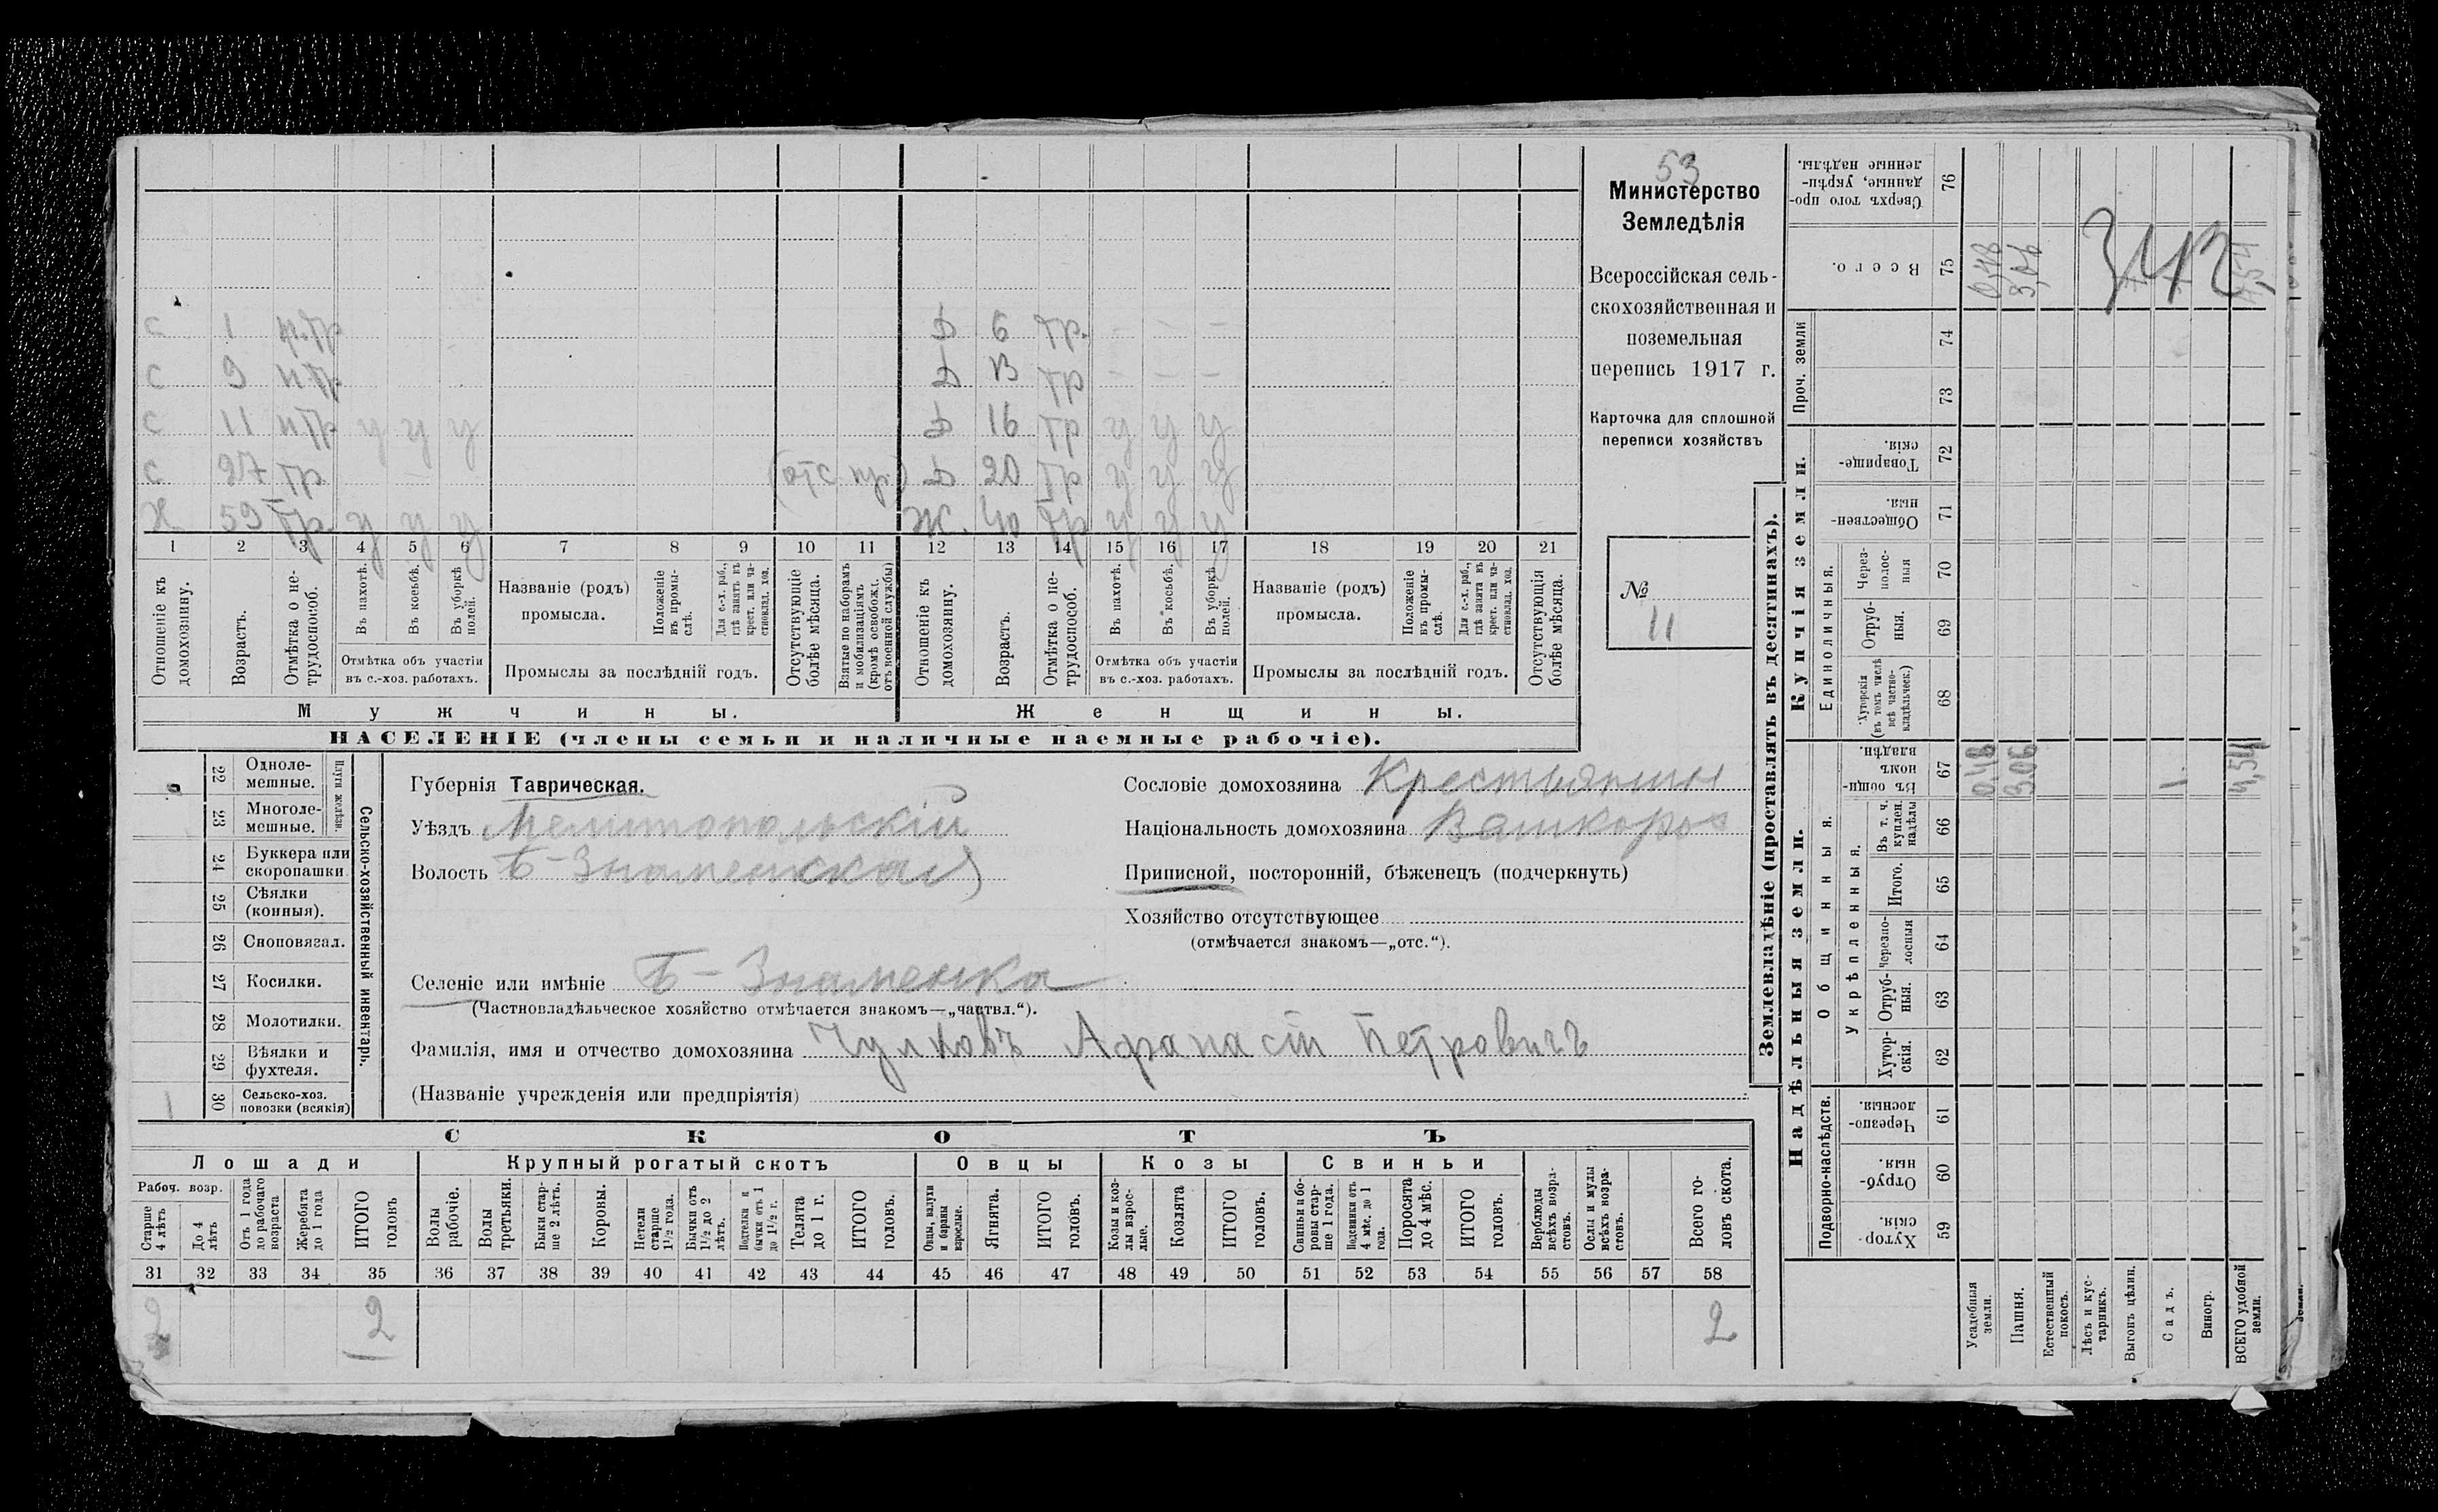 53
Министерство
Земледѣлія
Всероссійская сель-
скохозяйственная и
поземельная
перепись 1917 г.
Карточка для сплошной
переписи хозяйствъ
№
11
с 1 н.тр Д 6 тр. — — —
с 9 нтр Д 13 тр — — —
с 11 нтр у у у Д 16 тр у у у
с 27 тр (отс пр.) Д 20 тр у у у
Х 59 тр. у у у Ж. 40 тр у у у
1 2 3 4 5 6 7 8 9 10 11 12 13 14 15 16 17 18 19 20 21
Отношеніе къ домохозяину.
Возрастъ.
Отмѣтка о не-трудоспособ.
Въ пахотѣ.
Въ косьбѣ.
Въ уборкѣ полей.
Отмѣтка объ участіи
въ с.-хоз. работахъ.
Названіе (родъ)
промысла.
Положеніе въ промы-слѣ.
Для с.-х. раб., гдѣ занятъ въ крест. или ча-стновлад. хоз.
Промыслы за послѣдній годъ.
Отсутствующіе болѣе мѣсяца.
Взятые по наборамъ и мобилизаціямъ (кромѣ освобожд. отъ военной службы)
Отношеніе къ домохозяину.
Возрастъ.
Отмѣтка о не-трудоспособ.
Въ пахотѣ.
Въ косьбѣ.
Въ уборкѣ полей.
Отмѣтка объ участіи
въ с.-хоз. работахъ.
Названіе (родъ)
промысла.
Положеніе въ промы-слѣ.
Для с.-х. раб., гдѣ занята въ крест. или ча-стновлад. хоз.
Промыслы за послѣдній годъ.
Отсутствующія болѣе мѣсяца.
Мужчины. Женщины.
НАСЕЛЕНІЕ (члены семьи и наличные наемные рабочіе).
Сельско-хозяйственный инвентарь.
Плуги желѣзн.
22 Одноле-мешные.
23 Многоле-мешные.
24 Буккера или скоропашки
25 Сѣялки (конныя).
26 Сноповязал.
27 Косилки.
28 Молотилки.
29 Вѣялки и фухтеля.
1 30 Сельско-хоз. повозки (всякія)
Губернія Таврическая.
Уѣздъ Мелитопольскій
Волость Б-Знаменская
Сословіе домохозяина Крестьянин
Національность домохозяина
Приписной, посторонній, бѣженецъ (подчеркнуть)
Хозяйство отсутствующее
(отмѣчается знакомъ—„отс.“).
Селеніе или имѣніе Б-Знаменка
(Частновладѣльческое хозяйство отмѣчается знакомъ—„частвл.“).
Фамилія, имя и отчество домохозяина Чулковъ Афанасій Петровичъ
(Названіе учрежденія или предпріятія)
СКОТЪ
Лошади Крупный рогатый скотъ Овцы Козы Свиньи
Рабоч. возр.
Старше 4 лѣтъ
До 4 лѣтъ
Отъ 1 года до рабочаго возраста
Жеребята до 1 года
ИТОГО головъ
Волы рабочіе.
Волы третьяки.
Быки стар-ше 2 лѣтъ.
Коровы.
Нетели старше 1½ года.
Бычки отъ 1½ до 2 лѣтъ.
Подтелки и бычки отъ 1 до 1½ г.
Телята до 1 г.
ИТОГО головъ.
Овцы, валухи и бараны взрослые.
Ягнята.
ИТОГО головъ.
Козы и коз-лы взрос-лые.
Козлята
ИТОГО головъ.
Свиньи и бо-ровы стар-ше 1 года.
Подсвинки отъ 4 мѣс. до 1 года.
Поросята до 4 мѣс.
ИТОГО головъ.
Верблюды всѣхъ возра-стовъ.
Ослы и мулы всѣхъ возра-стовъ.
Всего го-ловъ скота.
31 32 33 34 35 36 37 38 39 40 41 42 43 44 45 46 47 48 49 50 51 52 53 54 55 56 57 58
2 2 2
Землевладѣніе (проставлять въ десятинахъ).
Надѣльныя земли.
Купчія земли.
Проч. земли
Подворно-наслѣдств.
Общинныя.
Укрѣпленныя.
Единоличныя.
Хутор-скія. 59
Отруб-ныя. 60
Черезпо-лосныя. 61
Хутор-скія. 62
Отруб-ныя. 63
Черезпо-лосныя 64
Итого. 65
Въ т. ч. куплен. надѣлы 66
Въ общин-номъ владѣн. 67
Хуторскія (въ томъ числѣ всѣ частно-владѣльческ.) 68
Отруб-ныя. 69
Через-полос-ныя 70
Обществен-ныя. 71
Товарище-скія. 72
73
74
Всего. 75
Сверхъ того про-данные, укрѣп-ленные надѣлы. 76
Усадебныя земли. 0,48 0,48
Пашня. 3.06 3,06
Естественный покосъ.
Лѣсъ и кус-тарникъ.
Выгонъ цѣлин.
Садъ. 1.
Виногр.
ВСЕГО удобной земли. 4,54 4,54